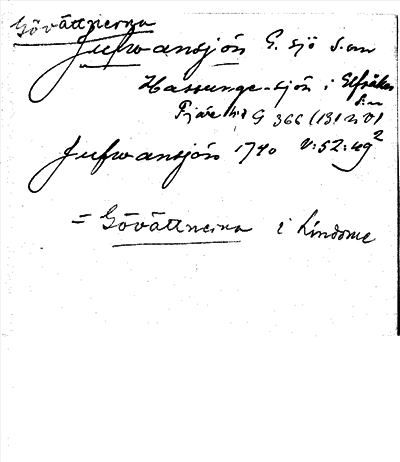 Gövättnerna
Jufwansjön G. sjö S.om
Hassunge-sjön i Elfsåker
S:n
Fjäre hd G 366 (131 n. V)
Jufwansjön 1740 V:52:49²
= Gövättnerna i Lindome